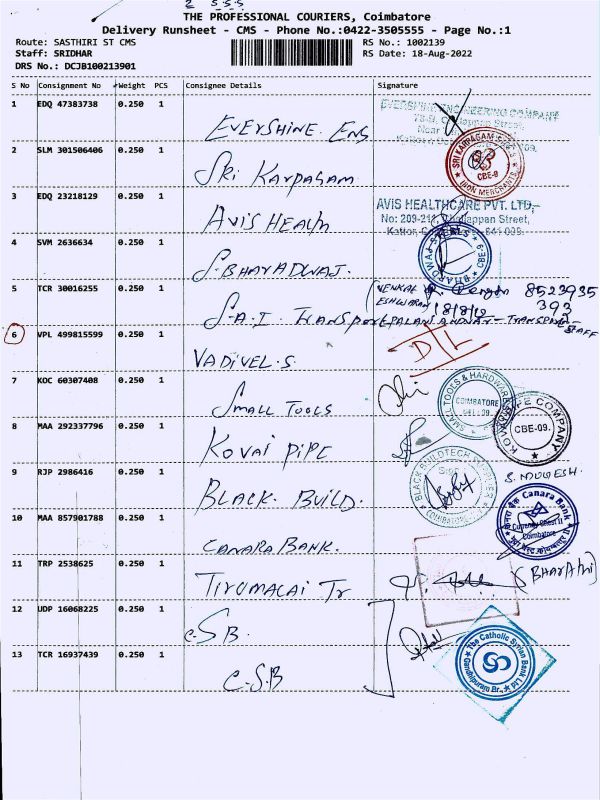 2 S.S.S
THE PROFESSIONAL COURIERS, Coimbatore
Delivery Runsheet - CMS - Phone No.:0422-3505555 - Page No.:1
Route: SASTHIRI ST CMS RS No.: 1002139
Staff: SRIDHAR RS Date: 18-Aug-2022
DRS No.: DCJB100213901
S No Consignment No Weight PCS Consignee Details Signature
1 EDQ 47383738 0.250 1 EVERSHINE. ENG EVERSHINE ENGINEERING COMPANY
2 SLM 301506406 0.250 1 SRI KARPAGAM SRI KARPAGAM IRON MERCHANTS CBE-9
3 EDQ 23218129 0.250 1 AVIS HEALTH AVIS HEALTHCARE PVT. LTD.,
No: 209-211, Chellappan Street,
4 SVM 2636634 0.250 1 S. BHARADWAJ. BHARDWAJ STEELS CBE-9
5 TCR 30016255 0.250 1 S.A.I TRANSPORT VENKAT ESHWARAN 18/8/12 8523935
393
PALANIANDAVAR - TRANSPORT - STAFF
6 VPL 499815599 0.250 1 VADIVEL.S D/L
7 KOC 60307408 0.250 1 SMALL TOOLS SMALL TOOLS & HARDWARE COIMBATORE
8 MAA 292337796 0.250 1 KOVAI PIPE KOVAI PIPE COMPANY CBE-09.
9 RJP 2986416 0.250 1 BLACK. BUILD. BLACK BUILDTECH COIMBATORE S. MUGESH.
10 MAA 857901788 0.250 1 CANARA BANK. Canara Bank Currency Chest II Coimbatore
11 TRP 2538625 0.250 1 TIRUMALAI Tr (BHARATHI)
12 UDP 16068225 0.250 1 C.S.B.
13 TCR 16937439 0.250 1 C.S.B The Catholic Syrian Bank Ltd Gandhipuram Br.,